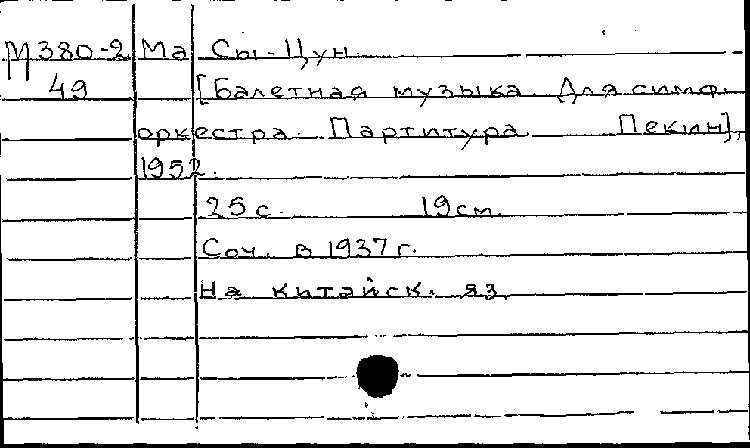 М380-2 Ма Сы-Цун
49 [Балетная музыка. Для симф.
оркестра. Партитура. Пекин],
1952.
25с. 19см.
Соч. в 1937г.
На китайск. яз.